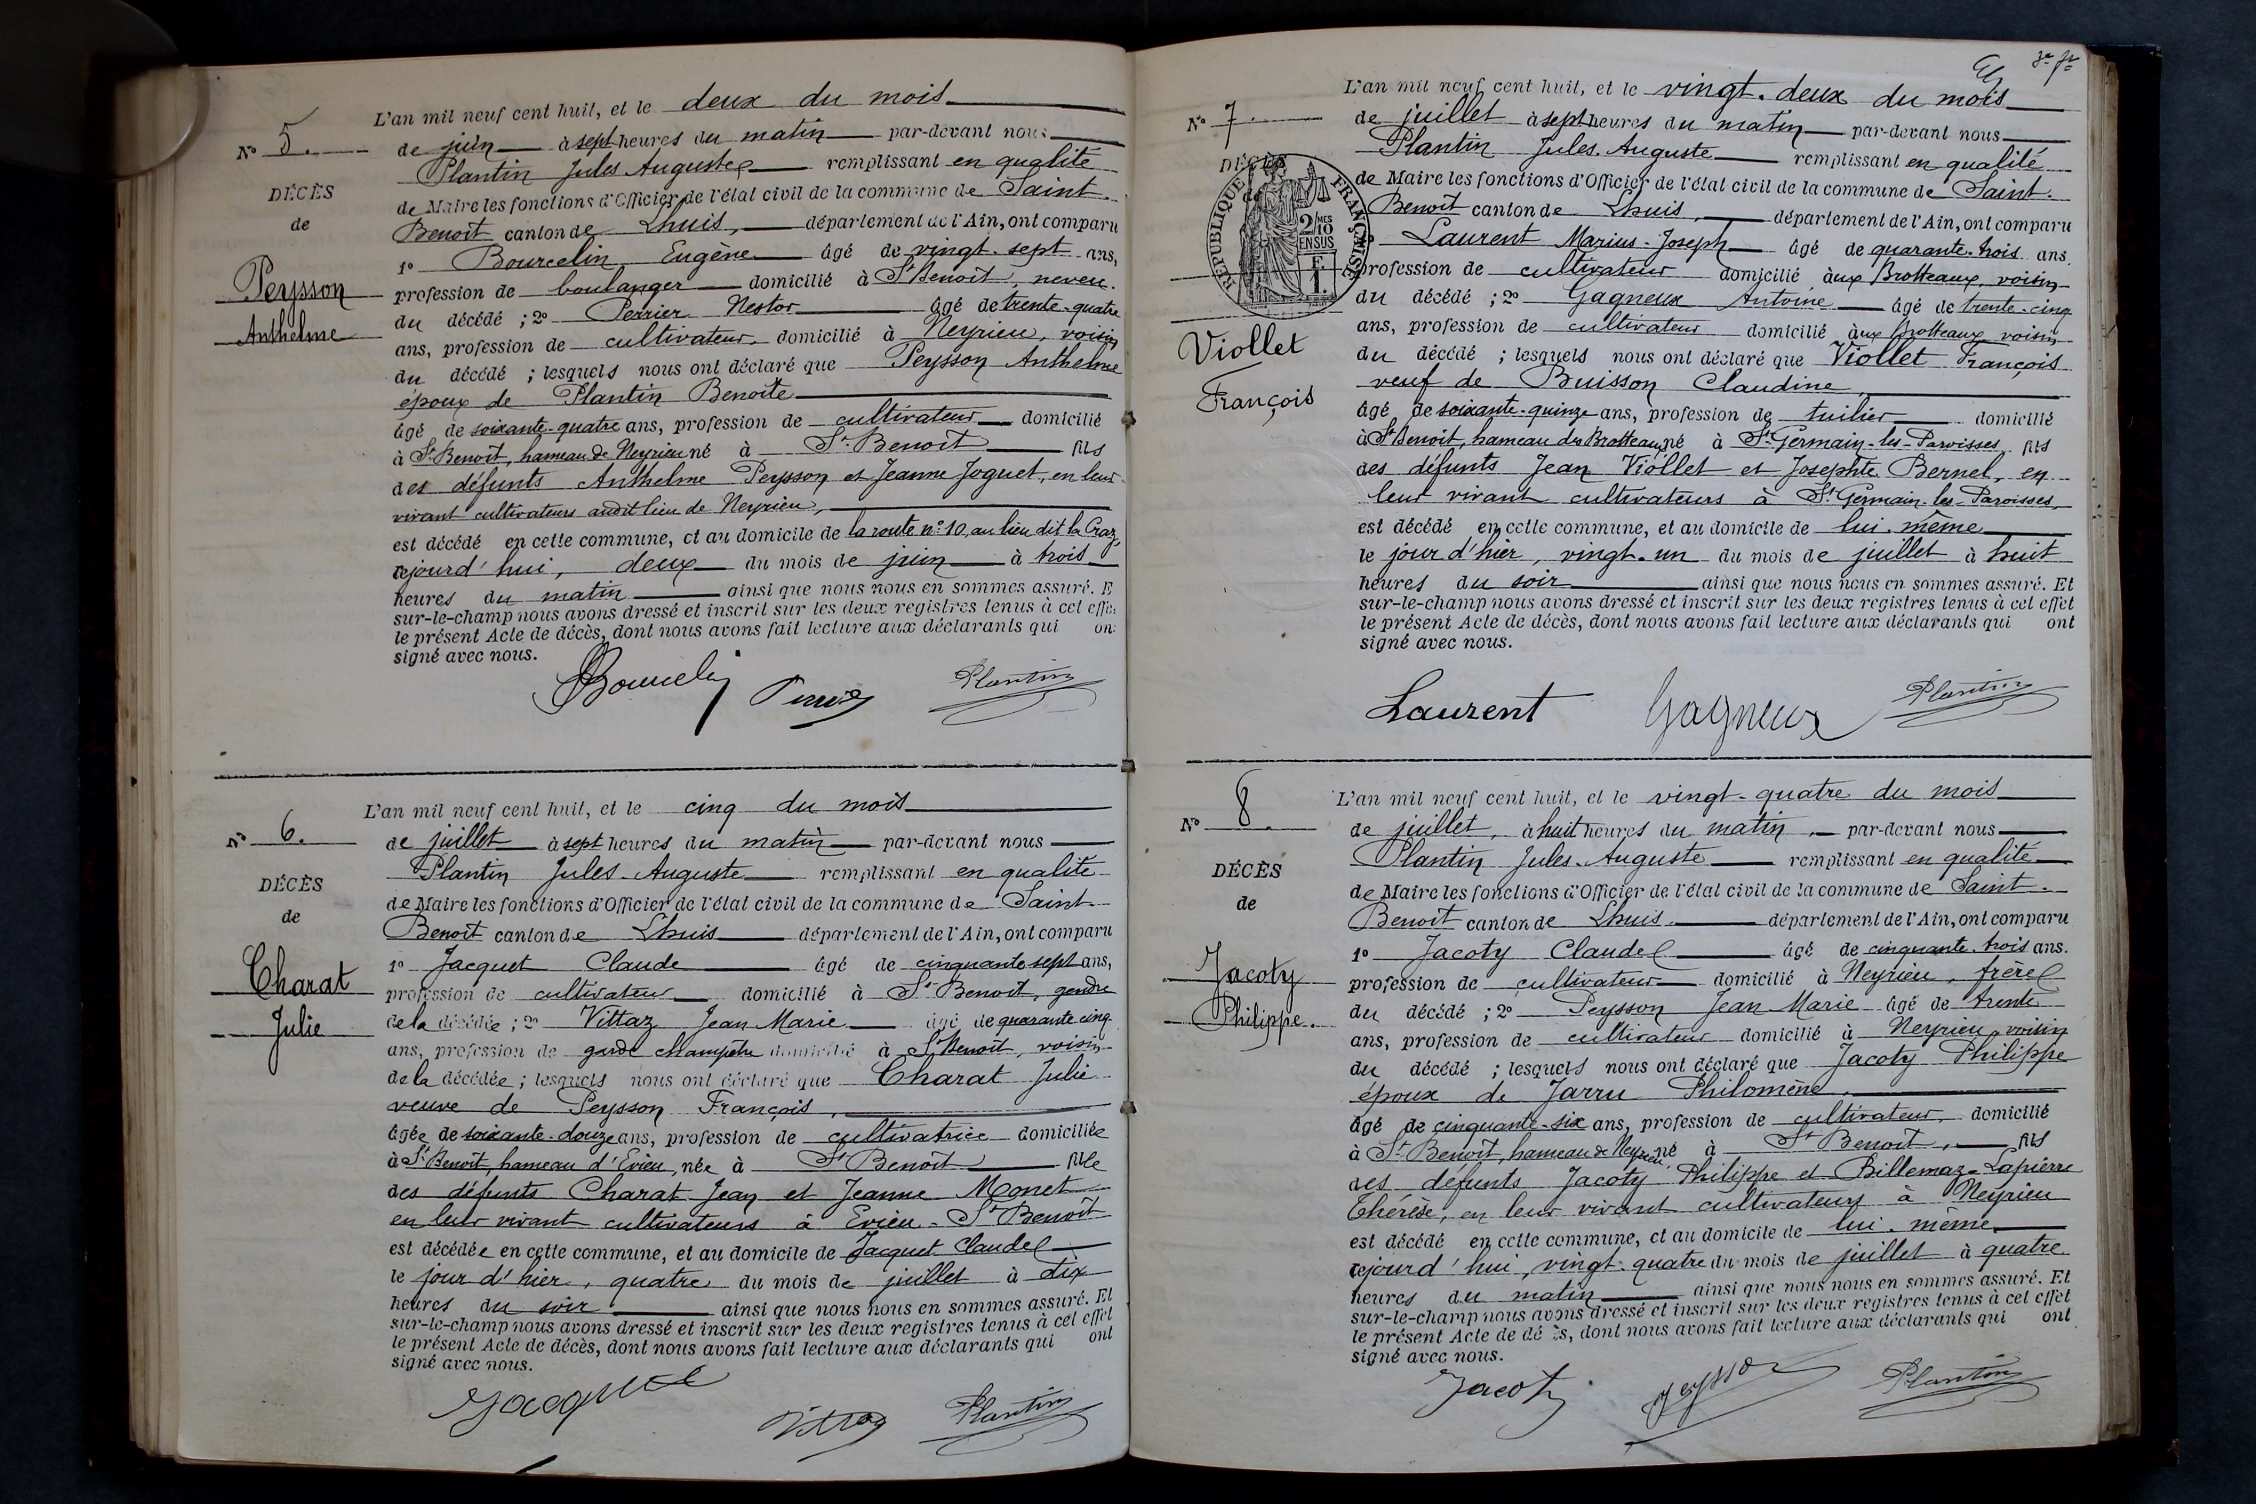 L'an mil neuf cent huit, et le deux du mois
No 5.
de juin à sept heures du matin par-devant nous
Plantin Jules Auguste remplissant en qualité
DÉCÈS
de Maire les fonctions d'Officier de l'état civil de la commune de Saint-
de
Benoit canton de Lhuis, département de l'Ain, ont comparu
1o Bourcelin Eugène âgé de vingt-sept ans,
Peysson
profession de boulanger domicilié à St Benoit, neveu
du décédé ; 2o Perrier Nestor âgé de trente-quatre
Anthelme
ans, profession de cultivateur domicilié à Neyrieu, voisin
du décédé ; lesquels nous ont déclaré que Peysson Anthelme
époux de Plantin Benoîte
âgé de soixante-quatre ans, profession de cultivateur domicilié
à St Benoit, hameau de Neyrieu né à St Benoit fils
des défunts Anthelme Peysson et Jeanne Joguet, en leur
vivant cultivateurs audit lieu de Neyrieu,
est décédé en cette commune, et au domicile de la route no 10, au lieu dit la Craz,
cejourd'hui, deux du mois de juin à trois
heures du matin ainsi que nous nous en sommes assuré. E
sur-le-champ nous avons dressé et inscrit sur les deux registres tenus à cet effet
le présent Acte de décès, dont nous avons fait lecture aux déclarants qui on
signé avec nous.
Bourcelin Perrier Plantin
L'an mil neuf cent huit, et le cinq du mois
No 6.
de juillet à sept heures du matin par-devant nous
Plantin Jules-Auguste remplissant en qualité
DÉCÈS
de Maire les fonctions d'Officier de l'état civil de la commune de Saint-
de
Benoit canton de Lhuis département de l'Ain, ont comparu
1o Jacquet Claude âgé de cinquante sept ans,
Charat
profession de cultivateur domicilié à St Benoit, gendre
Julie
de la décédée ; 2o Vittaz Jean Marie âgé de quarante cinq
ans, profession de garde champêtre domicilié à St Benoit, voisin
de la décédée ; lesquels nous ont déclaré que Charat Julie
veuve de Peysson François,
âgée de soixante-douze ans, profession de cultivatrice domiciliée
à St Benoit, hameau d'Evieu, née à St Benoit fille
des défunts Charat Jean et Jeanne Monet
en leur vivant cultivateurs à Evieu - St Benoit
est décédée en cette commune, et au domicile de Jacquet Claude
le jour d'hier, quatre du mois de juillet à dix
heures du soir ainsi que nous nous en sommes assuré. Et
sur-le-champ nous avons dressé et inscrit sur les deux registres tenus à cet effet
le présent Acte de décès, dont nous avons fait lecture aux déclarants qui ont
signé avec nous.
Jacquet Vittaz Plantin
L'an mil neuf cent huit, et le vingt-deux du mois
No 7
de juillet à sept heures du matin par-devant nous
Plantin Jules-Auguste remplissant en qualité
DÉCÈS
de Maire les fonctions d'Officier de l'état civil de la commune de Saint-
de
RÉPUBLIQUE FRANÇAISE
2/10 MES
EN SUS
F.
1.
Benoit canton de Lhuis, département de l'Ain, ont comparu
Laurent Marius-Joseph âgé de quarante-trois ans.
profession de cultivateur domicilié aux Brotteaux, voisin
du décédé ; 2o Gagneux Antoine âgé de trente-cinq
ans, profession de cultivateur domicilié aux Brotteaux, voisin
Viollet
du décédé ; lesquels nous ont déclaré que Viollet François
François
veuf de Buisson Claudine,
âgé de soixante-quinze ans, profession de tuilier domicilié
à St Benoit, hameau des Brotteaux né à St Germain-les-Paroisses, fils
des défunts Jean Viollet et Josephte Bernel, en
leur vivant cultivateurs à St Germain-les-Paroisses,
est décédé en cette commune, et au domicile de lui-même
le jour d'hier, vingt-un du mois de juillet à huit
heures du soir ainsi que nous nous en sommes assuré. Et
sur-le-champ nous avons dressé et inscrit sur les deux registres tenus à cet effet
le présent Acte de décès, dont nous avons fait lecture aux déclarants qui ont
signé avec nous.
Laurent Gagneux Plantin
L'an mil neuf cent huit, et le vingt-quatre du mois
No 8.
de juillet, à huit heures du matin, par-devant nous
Plantin Jules-Auguste remplissant en qualité
DÉCÈS
de Maire les fonctions d'Officier de l'état civil de la commune de Saint-
de
Benoit canton de Lhuis département de l'Ain, ont comparu
1o Jacoty Claude âgé de cinquante-trois ans.
Jacoty
profession de cultivateur domicilié à Neyrieu, frère
Philippe.
du décédé ; 2o Peysson Jean Marie âgé de trente
ans, profession de cultivateur domicilié à Neyrieu, voisin
du décédé ; lesquels nous ont déclaré que Jacoty Philippe
époux de Jarru Philomène,
âgé de cinquante-six ans, profession de cultivateur, domicilié
à St Benoit, hameau de Neyrieu né à St Benoit, fils
des défunts Jacoty Philippe et Billemaz-Lapierre
Thérèse, en leur vivant cultivateurs à Neyrieu
est décédé en cette commune, et au domicile de lui-même,
cejourd'hui, vingt-quatre du mois de juillet à quatre
heures du matin ainsi que nous nous en sommes assuré. Et
sur-le-champ nous avons dressé et inscrit sur les deux registres tenus à cet effet
le présent Acte de décès, dont nous avons fait lecture aux déclarants qui ont
signé avec nous.
Jacoty Peysson Plantin